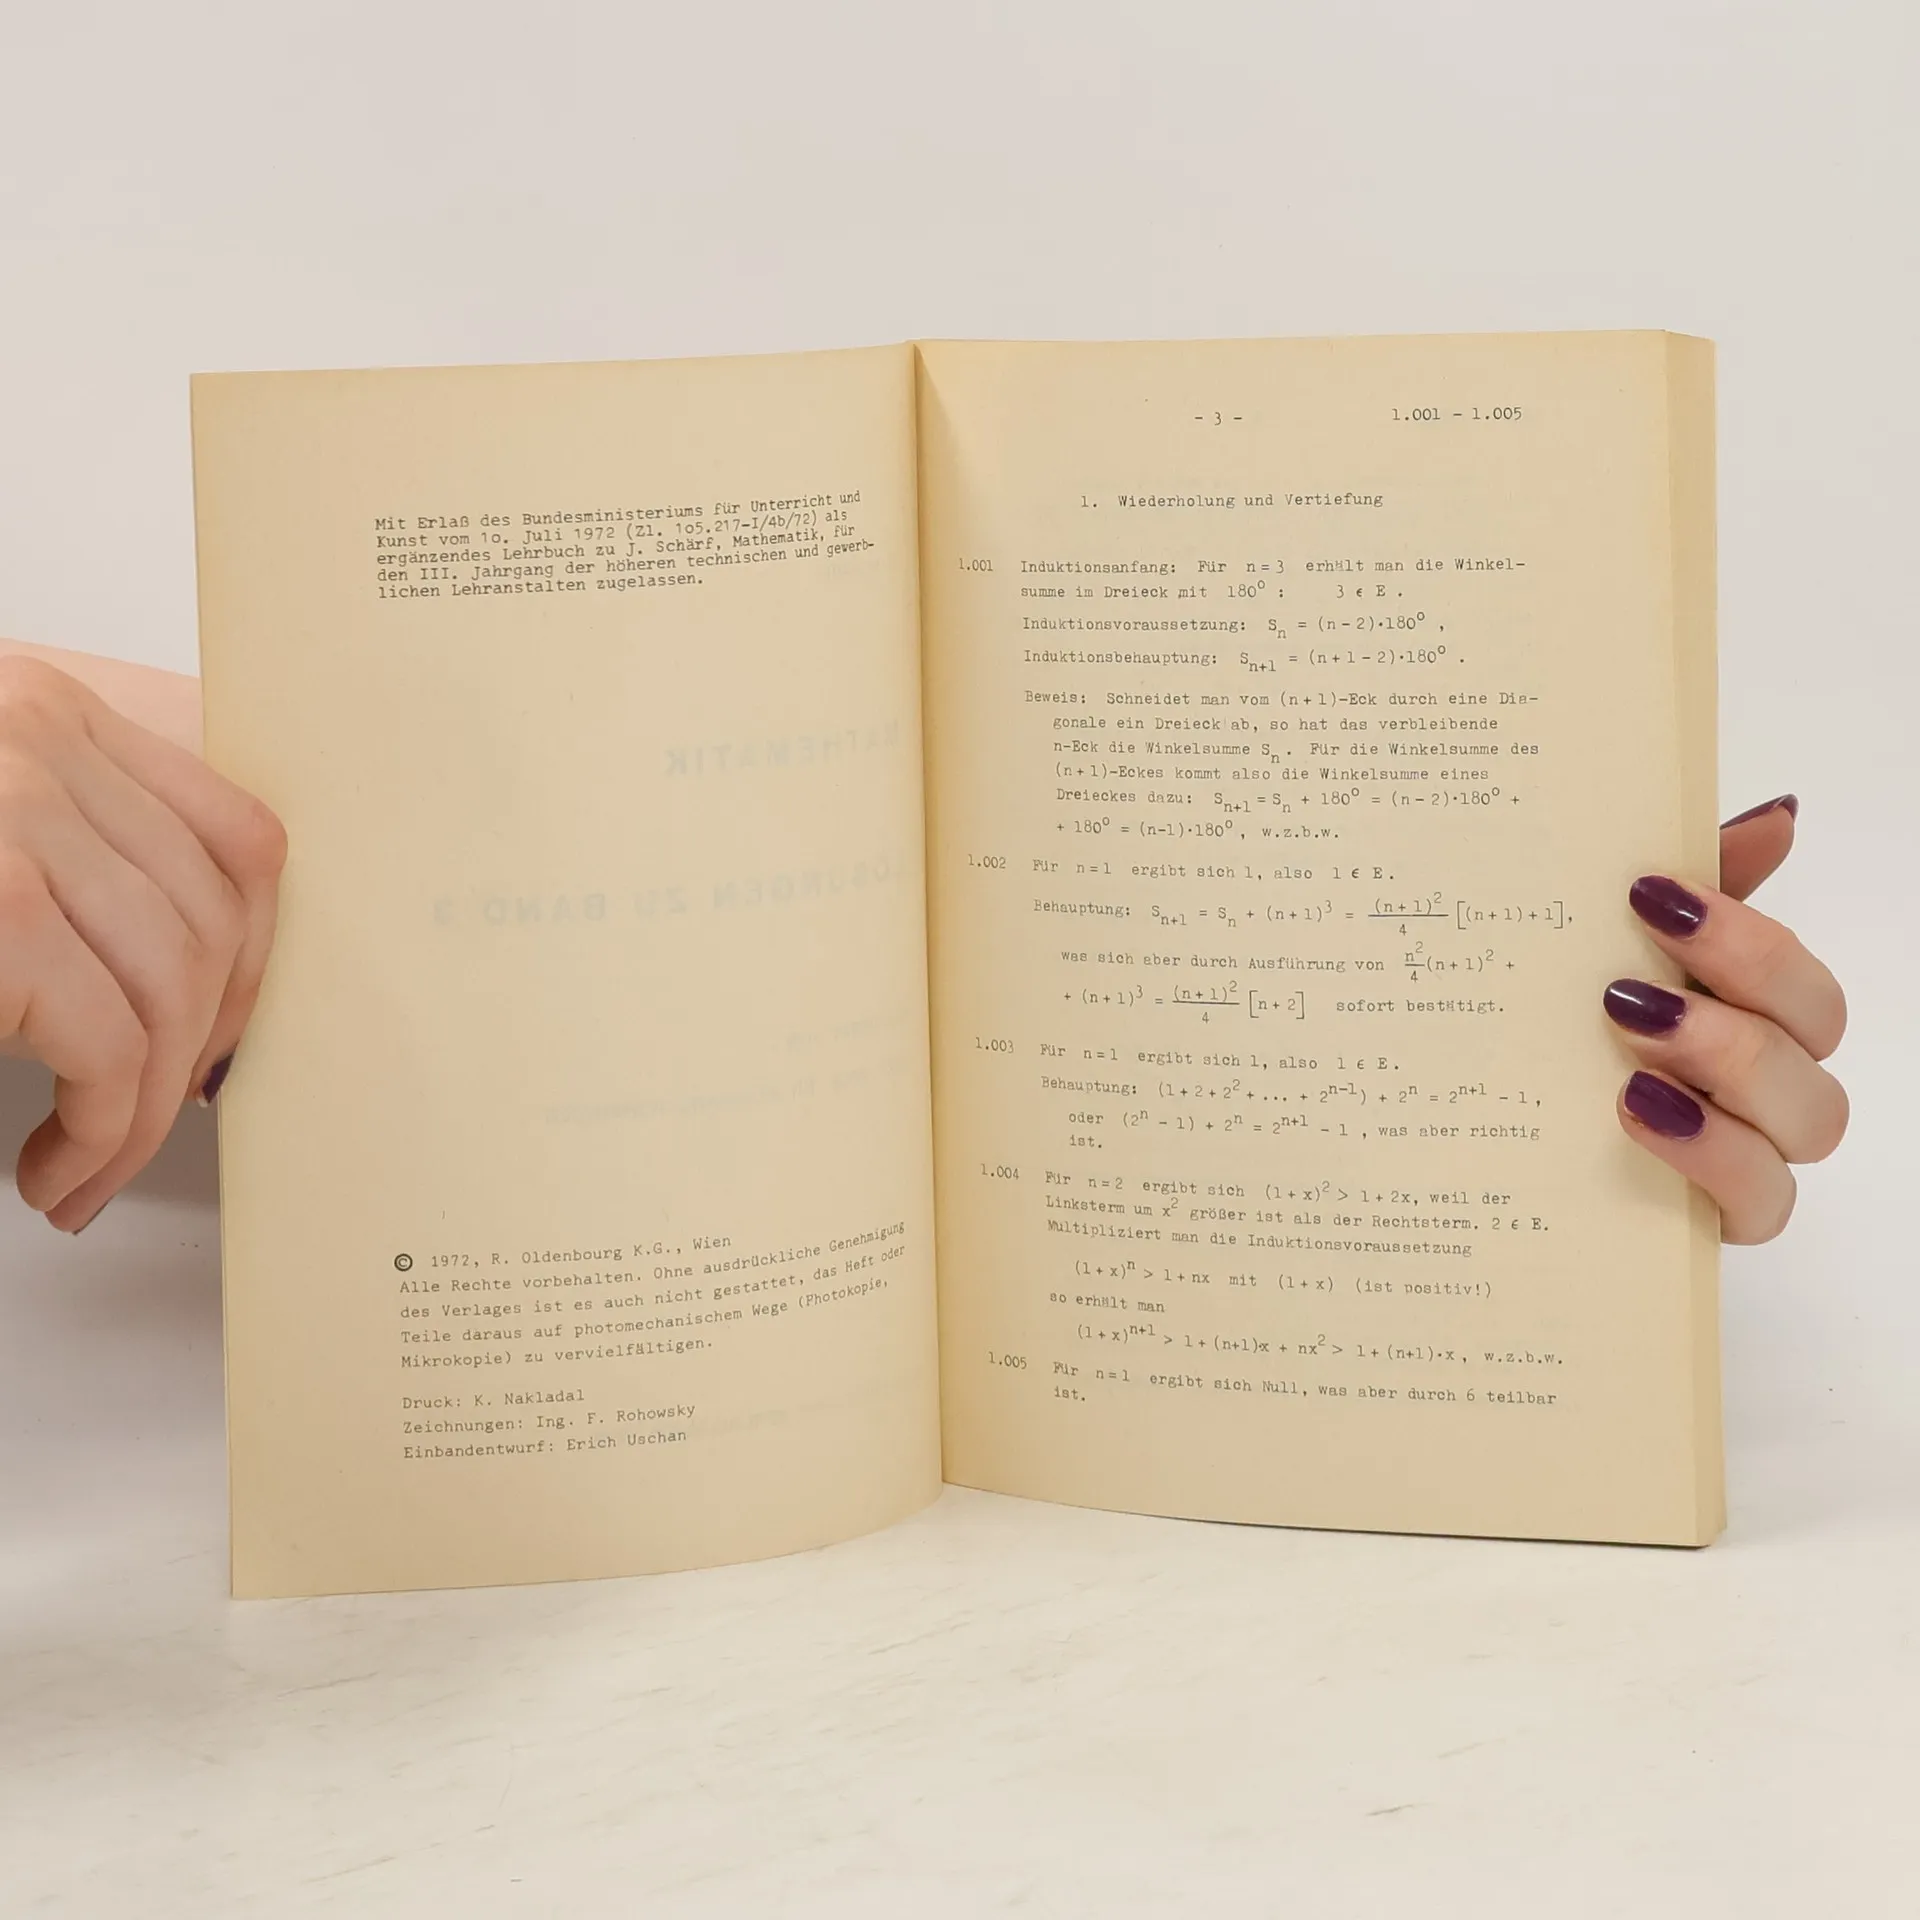 Mit Erlaß des Bundesministeriums für Unterricht und
Kunst vom 1o. Juli 1972 (Zl. 1o5.217-I/4b/72) als
ergänzendes Lehrbuch zu J. Schärf, Mathematik, für
den III. Jahrgang der höheren technischen und gewerb-
lichen Lehranstalten zugelassen.
© 1972, R. Oldenbourg K.G., Wien
Alle Rechte vorbehalten. Ohne ausdrückliche Genehmigung
des Verlages ist es auch nicht gestattet, das Heft oder
Teile daraus auf photomechanischem Wege (Photokopie,
Mikrokopie) zu vervielfältigen.
Druck: K. Nakladal
Zeichnungen: Ing. F. Rohowsky
Einbandentwurf: Erich Uschan
- 3 - 1.001 - 1.005
1. Wiederholung und Vertiefung
1.001 Induktionsanfang: Für n = 3 erhält man die Winkel-
summe im Dreieck mit 180° : 3 ϵ E .
Induktionsvoraussetzung: S_n = (n - 2)·180° ,
Induktionsbehauptung: S_{n+1} = (n + 1 - 2)·180° .
Beweis: Schneidet man vom (n + 1)-Eck durch eine Dia-
gonale ein Dreieck ab, so hat das verbleibende
n-Eck die Winkelsumme S_n. Für die Winkelsumme des
(n + 1)-Eckes kommt also die Winkelsumme eines
Dreieckes dazu: S_{n+1} = S_n + 180° = (n - 2)·180° +
+ 180° = (n-1)·180°, w.z.b.w.
1.002 Für n = 1 ergibt sich 1, also 1 ϵ E.
Behauptung: S_{n+1} = S_n + (n + 1)^3 = (n + 1)^2/4 [(n + 1) + 1],
was sich aber durch Ausführung von n^2/4 (n + 1)^2 +
+ (n + 1)^3 = (n + 1)^2/4 [n + 2] sofort bestätigt.
1.003 Für n = 1 ergibt sich 1, also 1 ϵ E.
Behauptung: (1 + 2 + 2^2 + ... + 2^{n-1}) + 2^n = 2^{n+1} - 1 ,
oder (2^n - 1) + 2^n = 2^{n+1} - 1 , was aber richtig
ist.
1.004 Für n = 2 ergibt sich (1 + x)^2 > 1 + 2x, weil der
Linksterm um x^2 größer ist als der Rechtsterm. 2 ϵ E.
Multipliziert man die Induktionsvoraussetzung
(1 + x)^n > 1 + nx mit (1 + x) (ist positiv!)
so erhält man
(1 + x)^{n+1} > 1 + (n+1)·x + nx^2 > 1 + (n+1)·x , w.z.b.w.
1.005 Für n = 1 ergibt sich Null, was aber durch 6 teilbar
ist.